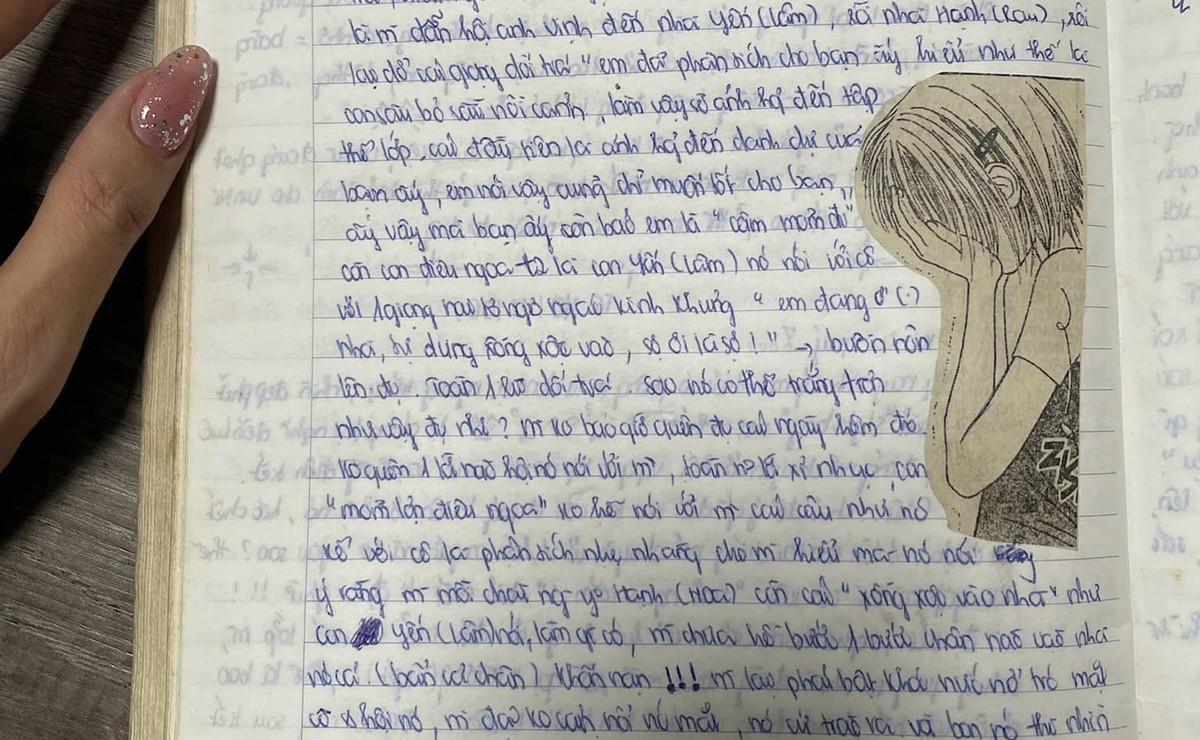 là mì dẫn hội anh Vinh đến nhà Yến (Lâm), rồi nhà Hạnh (Rau), rồi
lại dở cái giọng dối trá "em đã phân tích cho bạn ấy hiểu như thế là
con sâu bỏ rầu nồi canh, làm vậy sẽ ảnh hg̉ đến tập
thể lớp, cái đầu tiên là ảnh hg̉ đến danh dự của
bạn ấy, em nói vậy cũng chỉ muốn tốt cho bạn
ấy vậy mà bạn ấy còn bảo em là "câm mồm đi"
còn con điêu ngoa t2 là con Yến (Lâm) nó nói với cô
với 1 giọng nai tơ ngơ ngác kinh khủng "em đang ở
nhà, tự dưng xông xộc vào, sợ ơi là sợ!" → buồn nôn
lên đc. Toàn 1 lũ dối trá sao nó có thể trắng trợn
như vậy đc nhỉ? m ko bao giờ quên đc cái ngày hôm đó
ko quên 1 lời nào hội nó nói với m, toàn n~ lời sỉ nhục, con
"mồm lợn điêu ngoa" ko hề nói với m cái câu như nó
kể với cô là phân tích nhẹ nhàng cho m hiểu mà nó nói
ý rằng m mồi chài ng yo Hạnh (Hoa) còn cái "xông xộc vào nhà" như
con Yến (Lâm) nói, làm gì có, m chưa hề bước 1 bước chân nào vào nhà
nó cả (bẩn cả chân) khốn nạn !!! m lại phải bật khóc nức nở trc mặt
cô và hội nó, m đã ko cãi nổi nc mắt, nó cứ trào ra và bọn nó thì nhìn